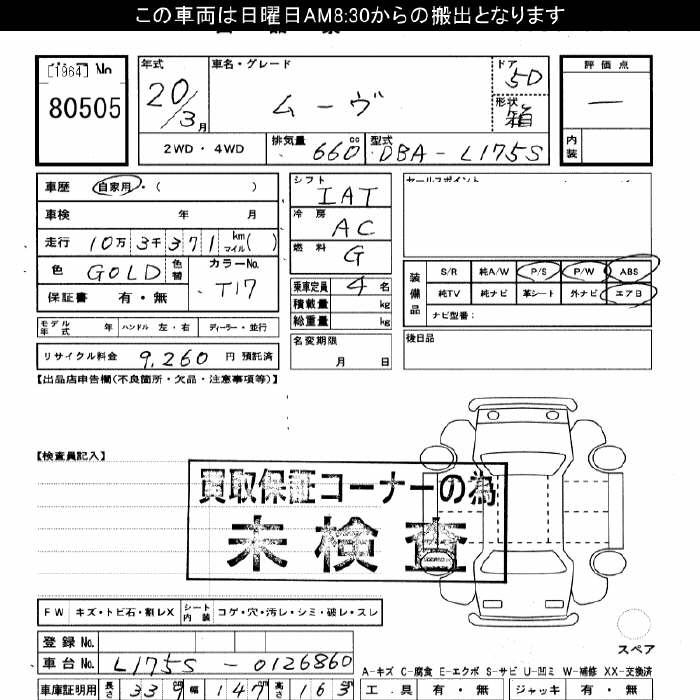 この車両は日曜日AM8:30からの搬出となります
[1964] No
80505
年式 20/3月
車名・グレード ムーヴ
ドア 5D
形状 箱
評価点 —
内装
2WD・4WD
排気量 660 cc
型式 DBA-L175S
車歴 自家用・( )
車検 年 月
走行 10万3千371 km マイル( )
色 GOLD 色替
カラーNo. T17
保証書 有・無
シフト IAT
冷房 AC
燃料 G
乗車定員 4名
積載量 kg
総重量 kg
名変期限 月 日
セールスポイント
装備品
S/R 純A/W P/S P/W ABS
純TV 純ナビ 革シート 外ナビ エアB
ナビ型番:
後日品
モデル年式 年 ハンドル 左・右 ディーラー・並行
リサイクル料金 9,260 円 預託済
【出品店申告欄(不良箇所・欠品・注意事項等)】
【検査員記入】
買取保証コーナーの為
未検査
FW キズ・トビ石・割レX シート内装 コゲ・穴・汚レ・シミ・破レ・スレ
スペア
登録No.
車台No. L175S-0126860
A-キズ C-腐食 E-エクボ S-サビ U-凹ミ W-補修 XX-交換済
車庫証明用 長さ 339 幅 147 高さ 163
工具 有・無 ジャッキ 有・無